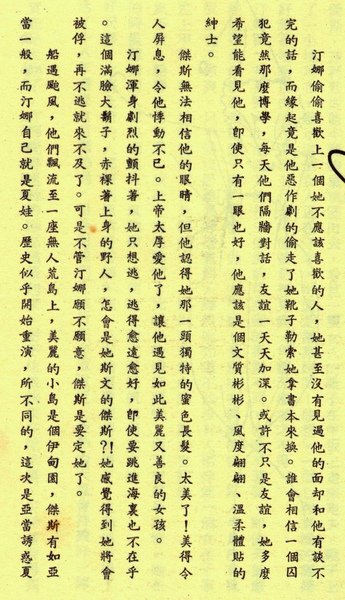 汀娜偷偷喜歡上一個她不應該喜歡的人，她甚至沒有見過他的面却和他有談不
完的話，而緣起竟是他惡作劇的偷走了她靴子勒索她拿書本來換。誰會相信一個囚
犯竟然那麼博學，每天他們隔牆對話，友誼一天天加深。或許不只是友誼，她多麼
希望能看見他，卽使只有一眼也好，他應該是個文質彬彬、風度翩翩、溫柔體貼的
紳士。
傑斯無法相信他的眼睛，但他認得她那一頭獨特的蜜色長髮。太美了！美得令
人屏息，令他悸動不已。上帝太厚愛他了，讓他遇見如此美麗又善良的女孩。
汀娜渾身劇烈的顫抖著，她只想逃，逃得愈遠愈好，卽使要跳進海裏也不在乎
。這個滿臉大鬍子，赤裸著上身的野人，怎會是她斯文的傑斯？！她感覺得到她將會
被俘，再不逃就來不及了。可是不管汀娜願不願意，傑斯是要定她了。
船遇颱風，他們飄流至一座無人荒島上，美麗的小島是個伊甸園，傑斯有如亞
當一般，而汀娜自己就是夏娃。歷史似乎開始重演，所不同的，這次是亞當誘惑夏